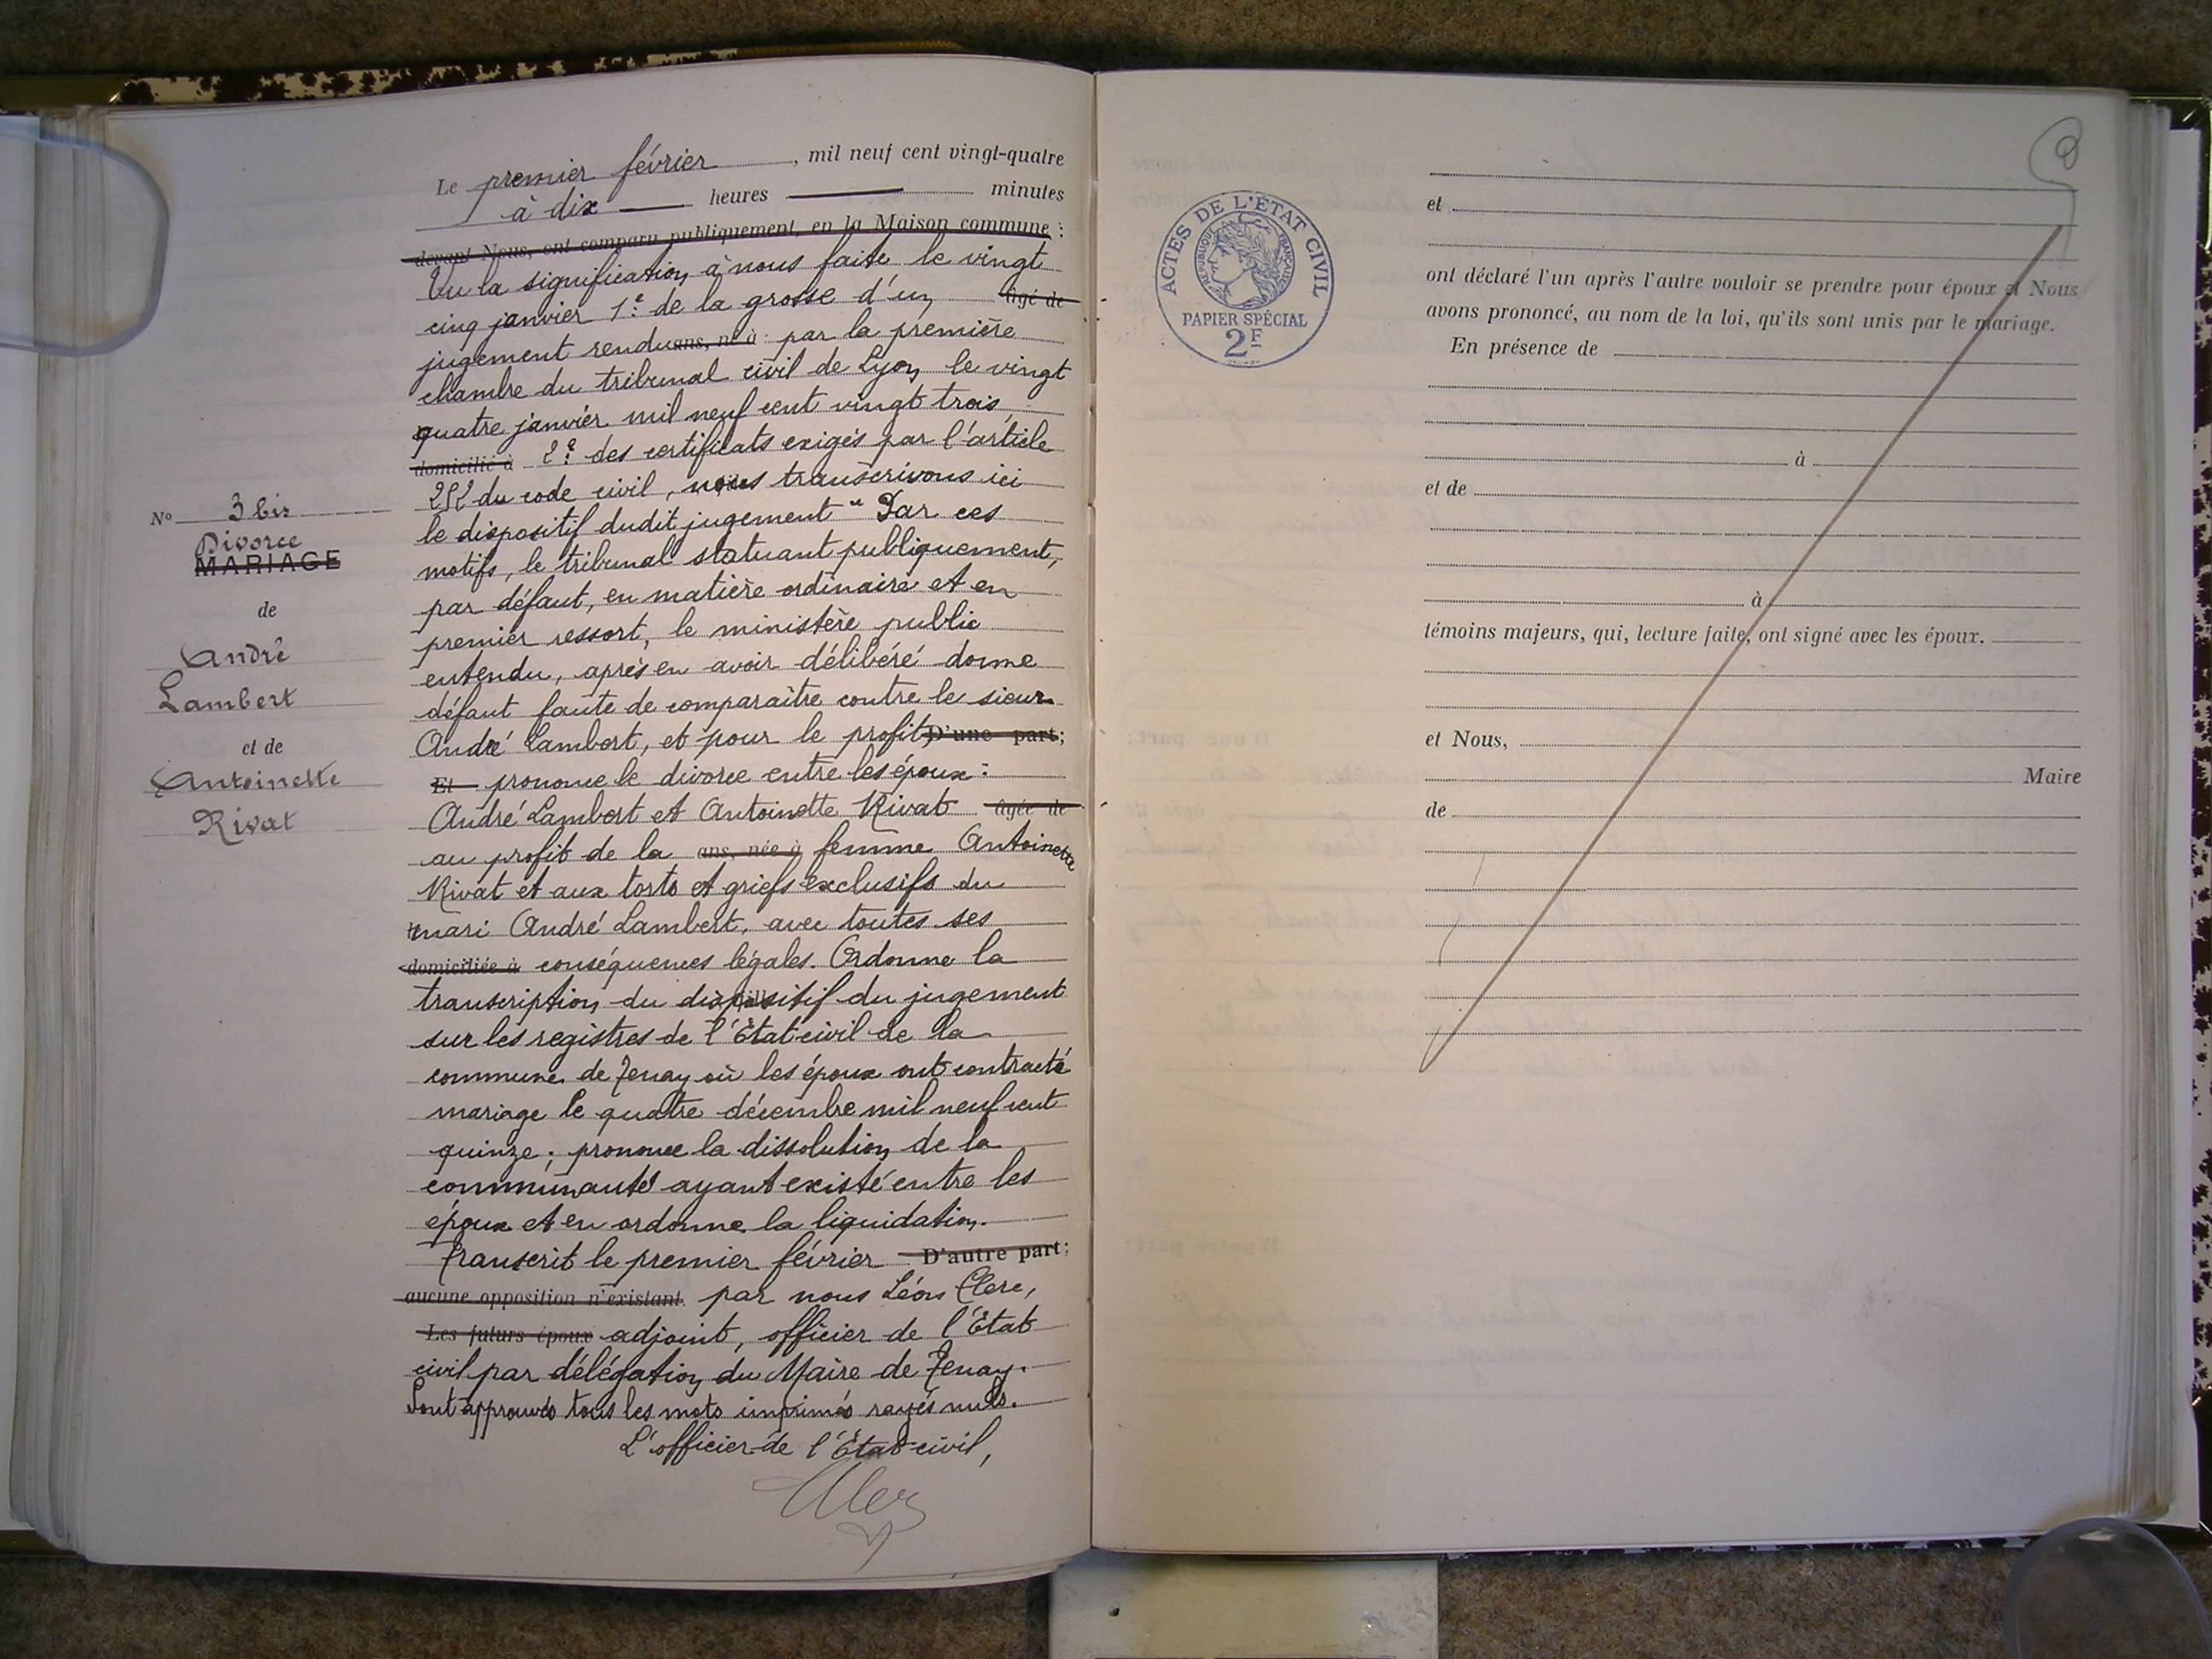 Le premier février, mil neuf cent vingt-quatre
à dix heures minutes
devant Nous, ont comparu publiquement, en la Maison commune :
Vu la signification à nous faite le vingt
cinq janvier 1º: de la grosse d'un âgé de
jugement rendu ans, né à par la première
chambre du tribunal civil de Lyon le vingt
quatre janvier mil neuf cent vingt trois,
domicilié à 2º: des certificats exigés par l'article
252 du code civil, nous transcrivons ici
le dispositif dudit jugement " Par ces
motifs, le tribunal statuant publiquement,
par défaut, en matière ordinaire et en
premier ressort, le ministère public
entendu, après en avoir délibéré donne
défaut faute de comparaître contre le sieur
André Lambert, et pour le profit, D'une part;
Et prononce le divorce entre les époux :
André Lambert et Antoinette Rivat âgée de
au profit de la ans, née à femme Antoinette
Rivat et aux torts et griefs exclusifs du
mari André Lambert, avec toutes ses
domiciliée à conséquences légales. Ordonne la
transcription du dispositif du jugement
sur les registres de l'État civil de la
commune de Tenay où les époux ont contracté
mariage le quatre décembre mil neuf cent
quinze ; prononce la dissolution de la
communauté ayant existé entre les
époux et en ordonne la liquidation.
Transcrit le premier février D'autre part;
aucune opposition n'existant. par nous Léon Clerc,
Les futurs époux adjoint, officier de l'État
civil par délégation du Maire de Tenay.
Sont approuvés tous les mots imprimés rayés nuls.
L'officier de l'État civil,
Nº 3 bis
Divorce
MARIAGE
de
André
Lambert
et de
Antoinette
Rivat
ACTES DE L'ÉTAT CIVIL
RÉPUBLIQUE FRANÇAISE
PAPIER SPÉCIAL
2F
et
ont déclaré l'un après l'autre vouloir se prendre pour époux et Nous
avons prononcé, au nom de la loi, qu'ils sont unis par le mariage.
En présence de
à
et de
à
témoins majeurs, qui, lecture faite, ont signé avec les époux.
et Nous,
Maire
de